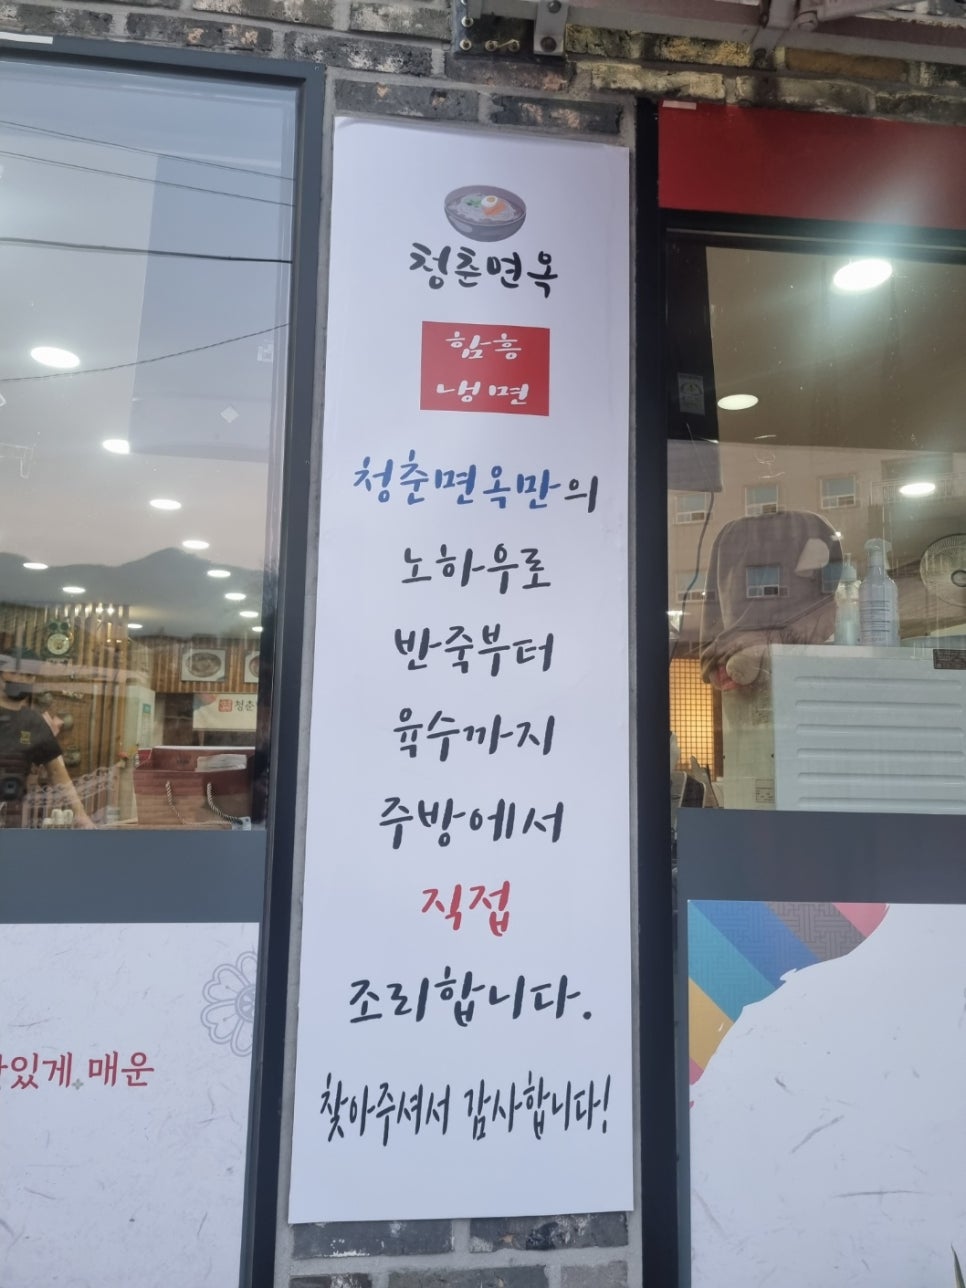 청춘면옥
함흥
냉면
청춘면옥만의
노하우로
반죽부터
육수까지
주방에서
직접
조리합니다.
찾아주셔서 감사합니다!
있게 매운
청춘